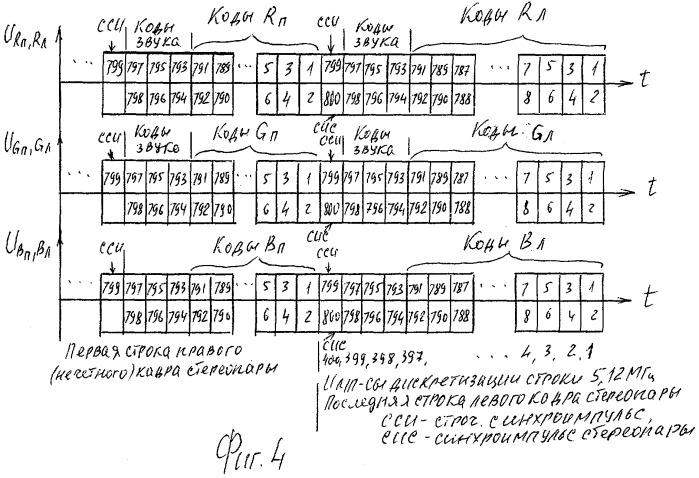 Коды Rп Коды Rл
ССИ Коды звука ССИ Коды звука
URп,Rл
... 799 797 795 793 791 789 ... 5 3 1 799 797 795 793 791 789 787 ... 7 5 3 1
t
798 796 794 792 790 6 4 2 800 798 796 794 792 790 788 8 6 4 2
СИС
ССИ Коды звука Коды Gп ССИ Коды звука Коды Gл
UGп,Gл
799 797 795 793 791 789 ... 5 3 1 799 797 795 793 791 789 787 ... 7 5 3 1
t
798 796 794 792 790 6 4 2 800 798 796 794 792 790 788 8 6 4 2
СИС
ССИ Коды Bп ССИ Коды Bл
UBп,Bл
799 797 795 793 791 789 ... 5 3 1 799 797 795 793 791 789 787 ... 7 5 3 1
t
798 796 794 792 790 6 4 2 800 798 796 794 792 790 788 8 6 4 2
СИС
Первая строка правого
(нечетного) кадра стереопары
400,399,398,397, ... 4,3,2,1
Имп-сы дискретизации строки 5,12 МГц
Последняя строка левого кадра стереопары
ССИ - строч. синхроимпульс,
СИС - синхроимпульс стереопары
Фиг. 4